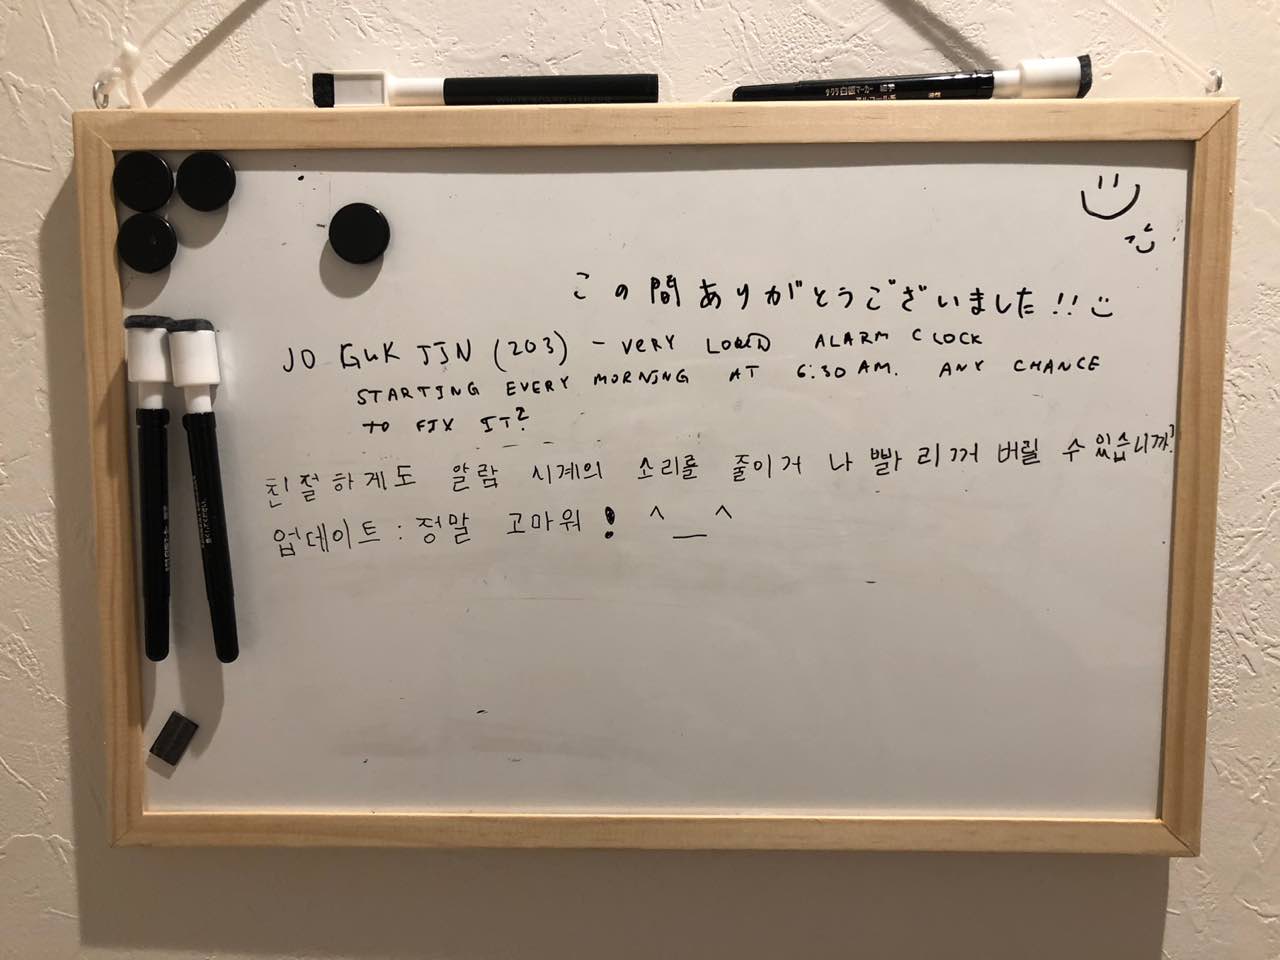 この間ありがとうございました!!
JO GUK JIN (203) - VERY LOUD ALARM CLOCK
STARTING EVERY MORNING AT 6:30 AM. ANY CHANCE
TO FIX IT?
친절하게도 알람 시계의 소리를 줄이거나 빨리 꺼 버릴 수 있습니까?
업데이트 : 정말 고마워! ^_^